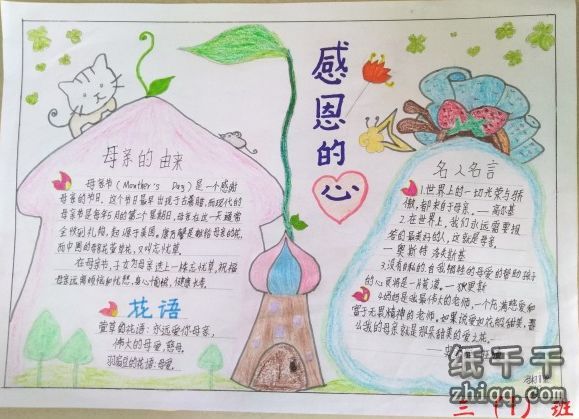 感恩的心
母亲的由来
母亲节（Mouther's Day）是一个感谢
母亲的节日。这个节日最早出现于古希腊，而现代的
母亲节是每年5月的第二个星期日。母亲在这一天通常
会收到礼物，起源于美国。康乃馨是献给母亲的花，
而中国的母亲花萱草花，又叫忘忧草。
在母亲节，子女为母亲送上一株忘忧草，祝福
母亲远离烦恼和忧愁，身心愉快，健康长寿。
花语
萱草的花语：永远爱你母亲，
伟大的母爱，慈母。
的花语：母爱。
名人名言
1.世界上的一切光荣与骄
傲，都来自于母亲。——高尔基
2.在世界上，我们永远需要报
答的最美好的人，这就是母亲。
—奥斯特洛夫斯基
3.没有无私的，自我牺牲的母爱的帮助，孩子
的心灵将是一片荒漠。—狄更斯
4.妈妈是我最伟大的老师，一个充满慈爱和
富于无畏精神的老师。如果说爱如花般甜美，那
么我的母亲就是那朵甜美的爱之花。
三（十）班
纸千千
zhiqq.com